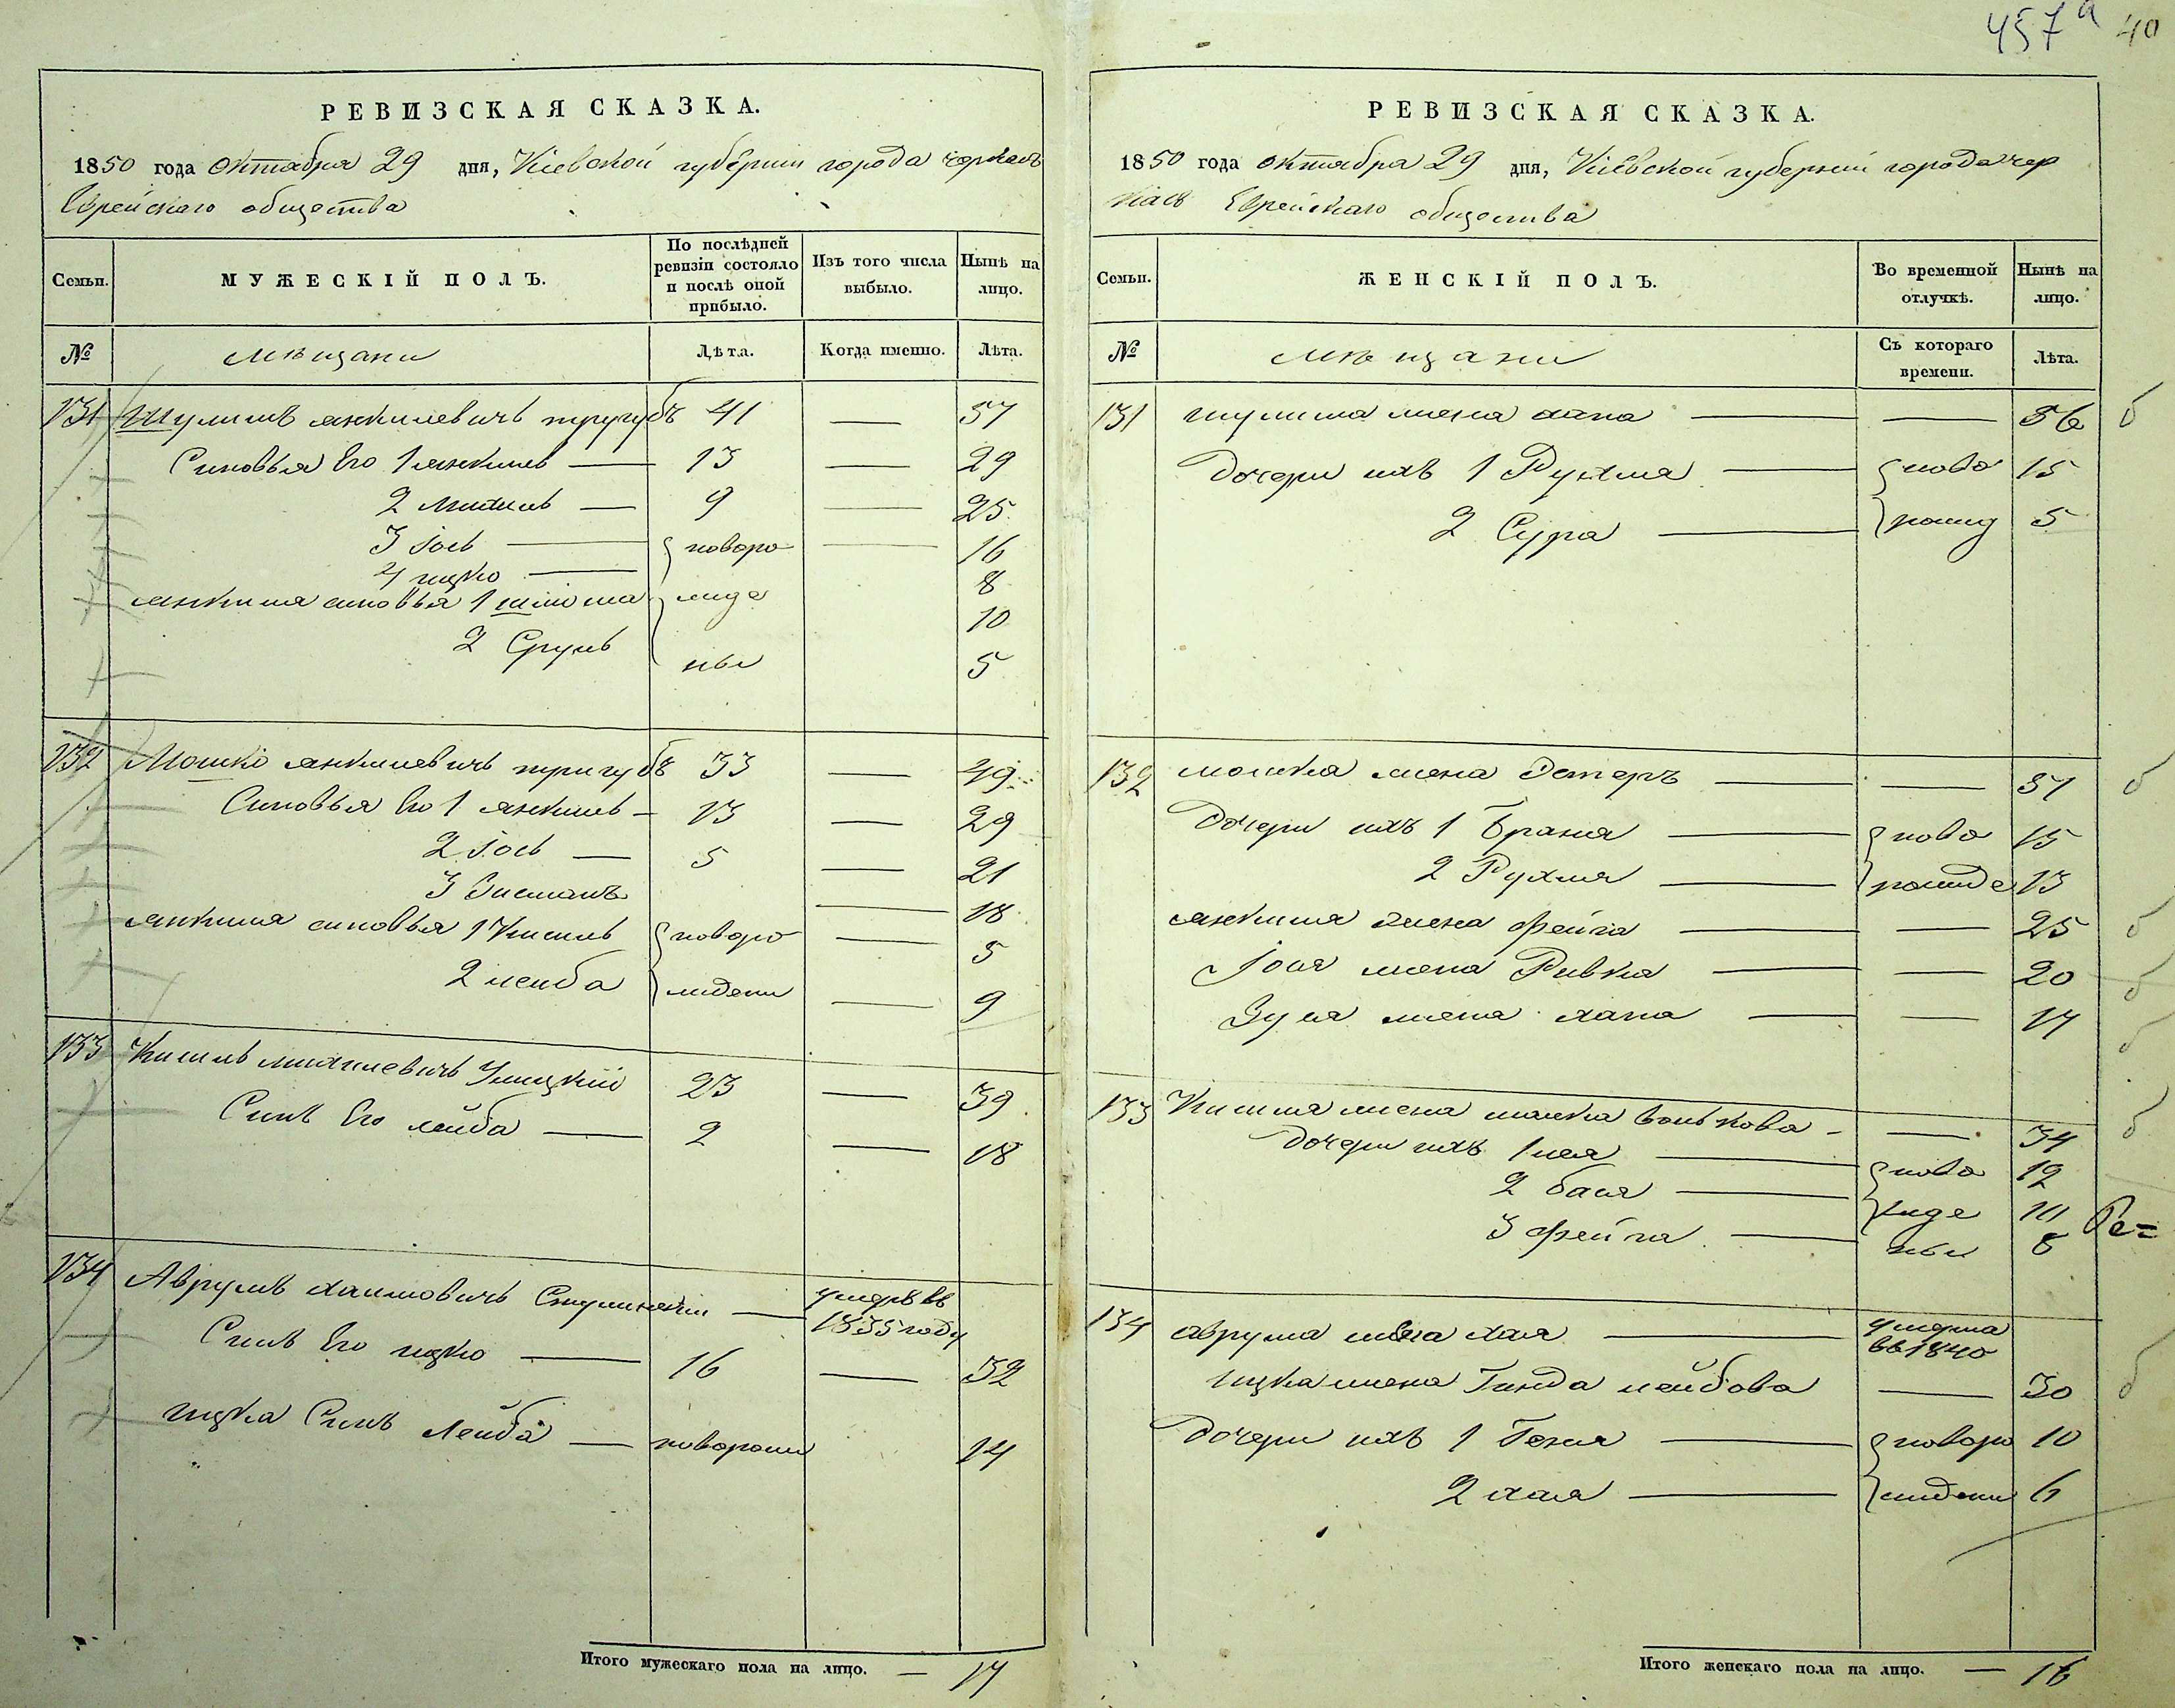 457а 40
РЕВИЗСКАЯ СКАЗКА.
1850 года Октабря 29 дня, Кіевской губерніи города черкасъ
Еврейскаго общества
Семьи.
МУЖЕСКІЙ ПОЛЪ.
По послѣдней ревизіи состояло и послѣ оной прибыло.
Изъ того числа выбыло.
Нынѣ на лицо.
№ мѣщани Лѣта. Когда именно. Лѣта.
131 Шулимъ янкилевичъ тругубъ 41 — 57
Синовья Его 1 янкиль — 13 — 29
2 михиль — 9 — 25
3 Іось — новоро — 16
4 ицко — 8
янкиля синовья 1 шлиома лиде 10
2 Сруль ны 5
132 Мошко янкилевичъ тригубъ 33 — 49
Синовья Его 1 янкиль — 13 — 29
2 Іось — 5 — 21
3 Зисманъ — 18
янкиля синовья 1 Кисиль новоро — 5
2 лейба ждени — 9
133 Кисиль михилевичъ Улицкій 23 — 39
Синъ Его лейба — 2 — 18
134 Аврумъ хаимовичъ — умеръ въ 1835 году
Синъ Его ицко — 16 — 32
ицка Синъ Лейба — новорожи 14
Итого мужескаго пола на лицо. — 17
РЕВИЗСКАЯ СКАЗКА.
1850 года октабра 29 дня, Кіевской губерніи города чер
касъ Еврейскаго общества
Семьи.
ЖЕНСКІЙ ПОЛЪ.
Во временной отлучкѣ.
Нынѣ на лицо.
№ мѣщани Съ котораго времени. Лѣта.
131 шулима жена хана — — 56 б
Дочери ихъ 1 Рухля — ново 15
2 Сура — рожд 5
132 мошка жена Эстеръ — — 37 б
Дочери ихъ 1 Браня — ново 15
2 Рухля — рожде 13
янкиля жена фейга — — 25 б
Іося жена Ривка — — 20 б
Зуся жена хана — — 17 б
133 Кисиля жена малка Волькова — — 34 б
Дочери ихъ 1 лея — ново 12
2 бася — жде 10
3 фейга — ны 8
134 аврума жена хая — умерла въ 1840
ицка жена Гинда лейбова — 30 б
Дочери ихъ 1 Геня — новоро 10
2 хая — ждени 6
Итого женскаго пола на лицо. — 16